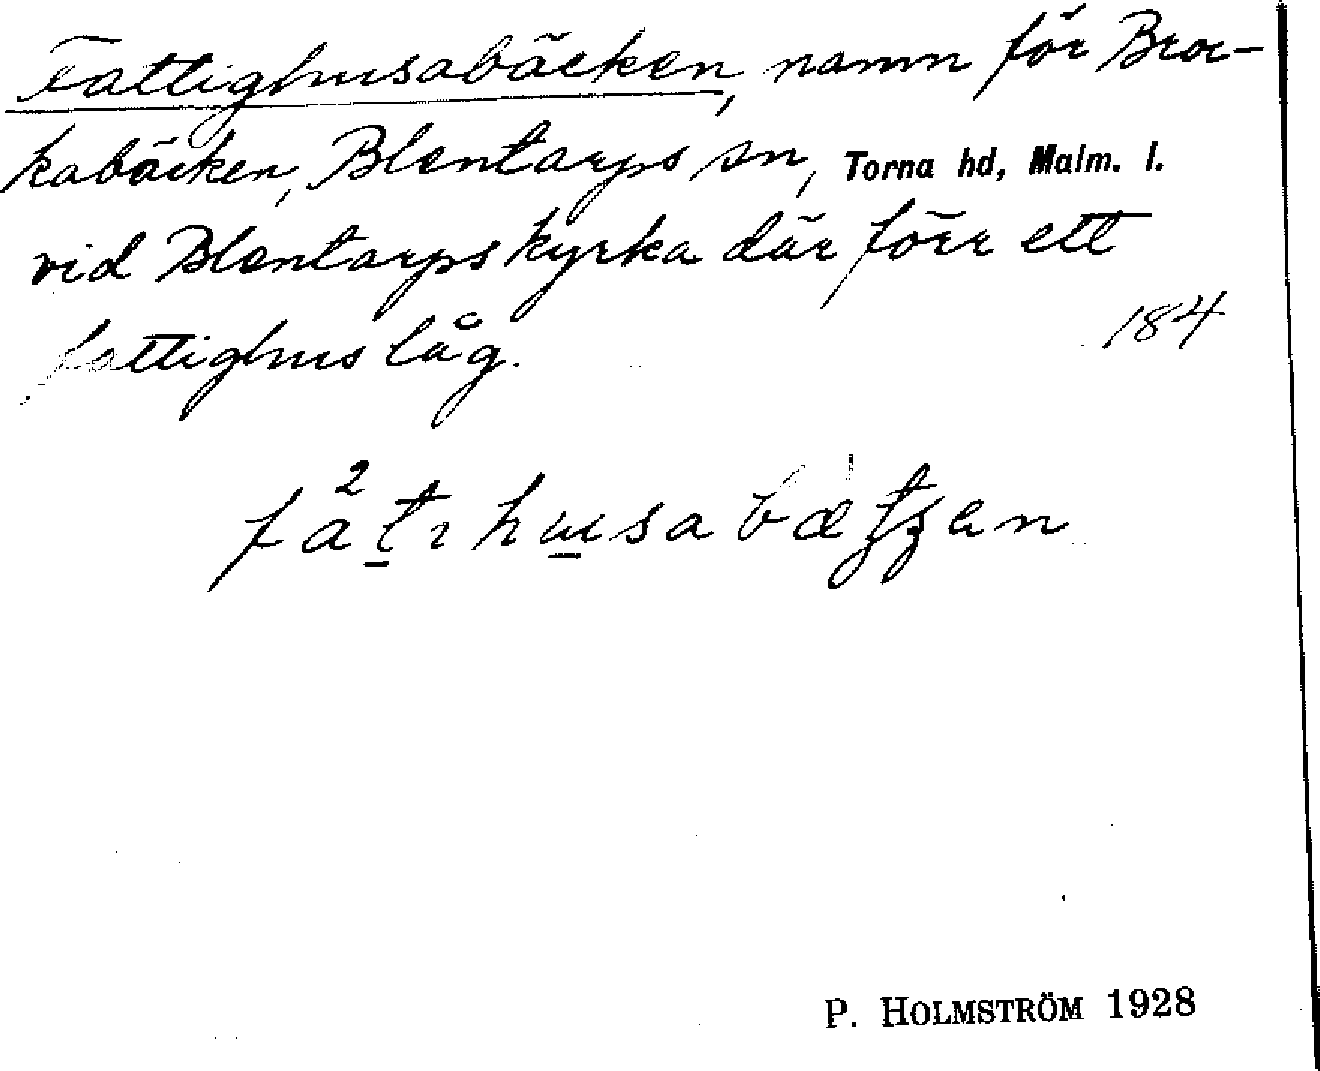 Fattighusabäcken, namn för Broc-
kabäcken, Blentarps sn, Torna hd, Malm. l.
vid Blentarps kyrka där förr ett
fattighus låg.
184
P. HOLMSTRÖM 1928